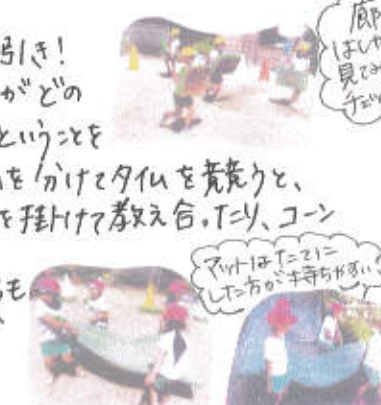 引き!
がどの
ということを
を分けてタイムを競うと、
を掛けて教え合ったり、コーン
も
廊
はしや
見てみ
チェッ
マットはたてに
した方が持ちやすい